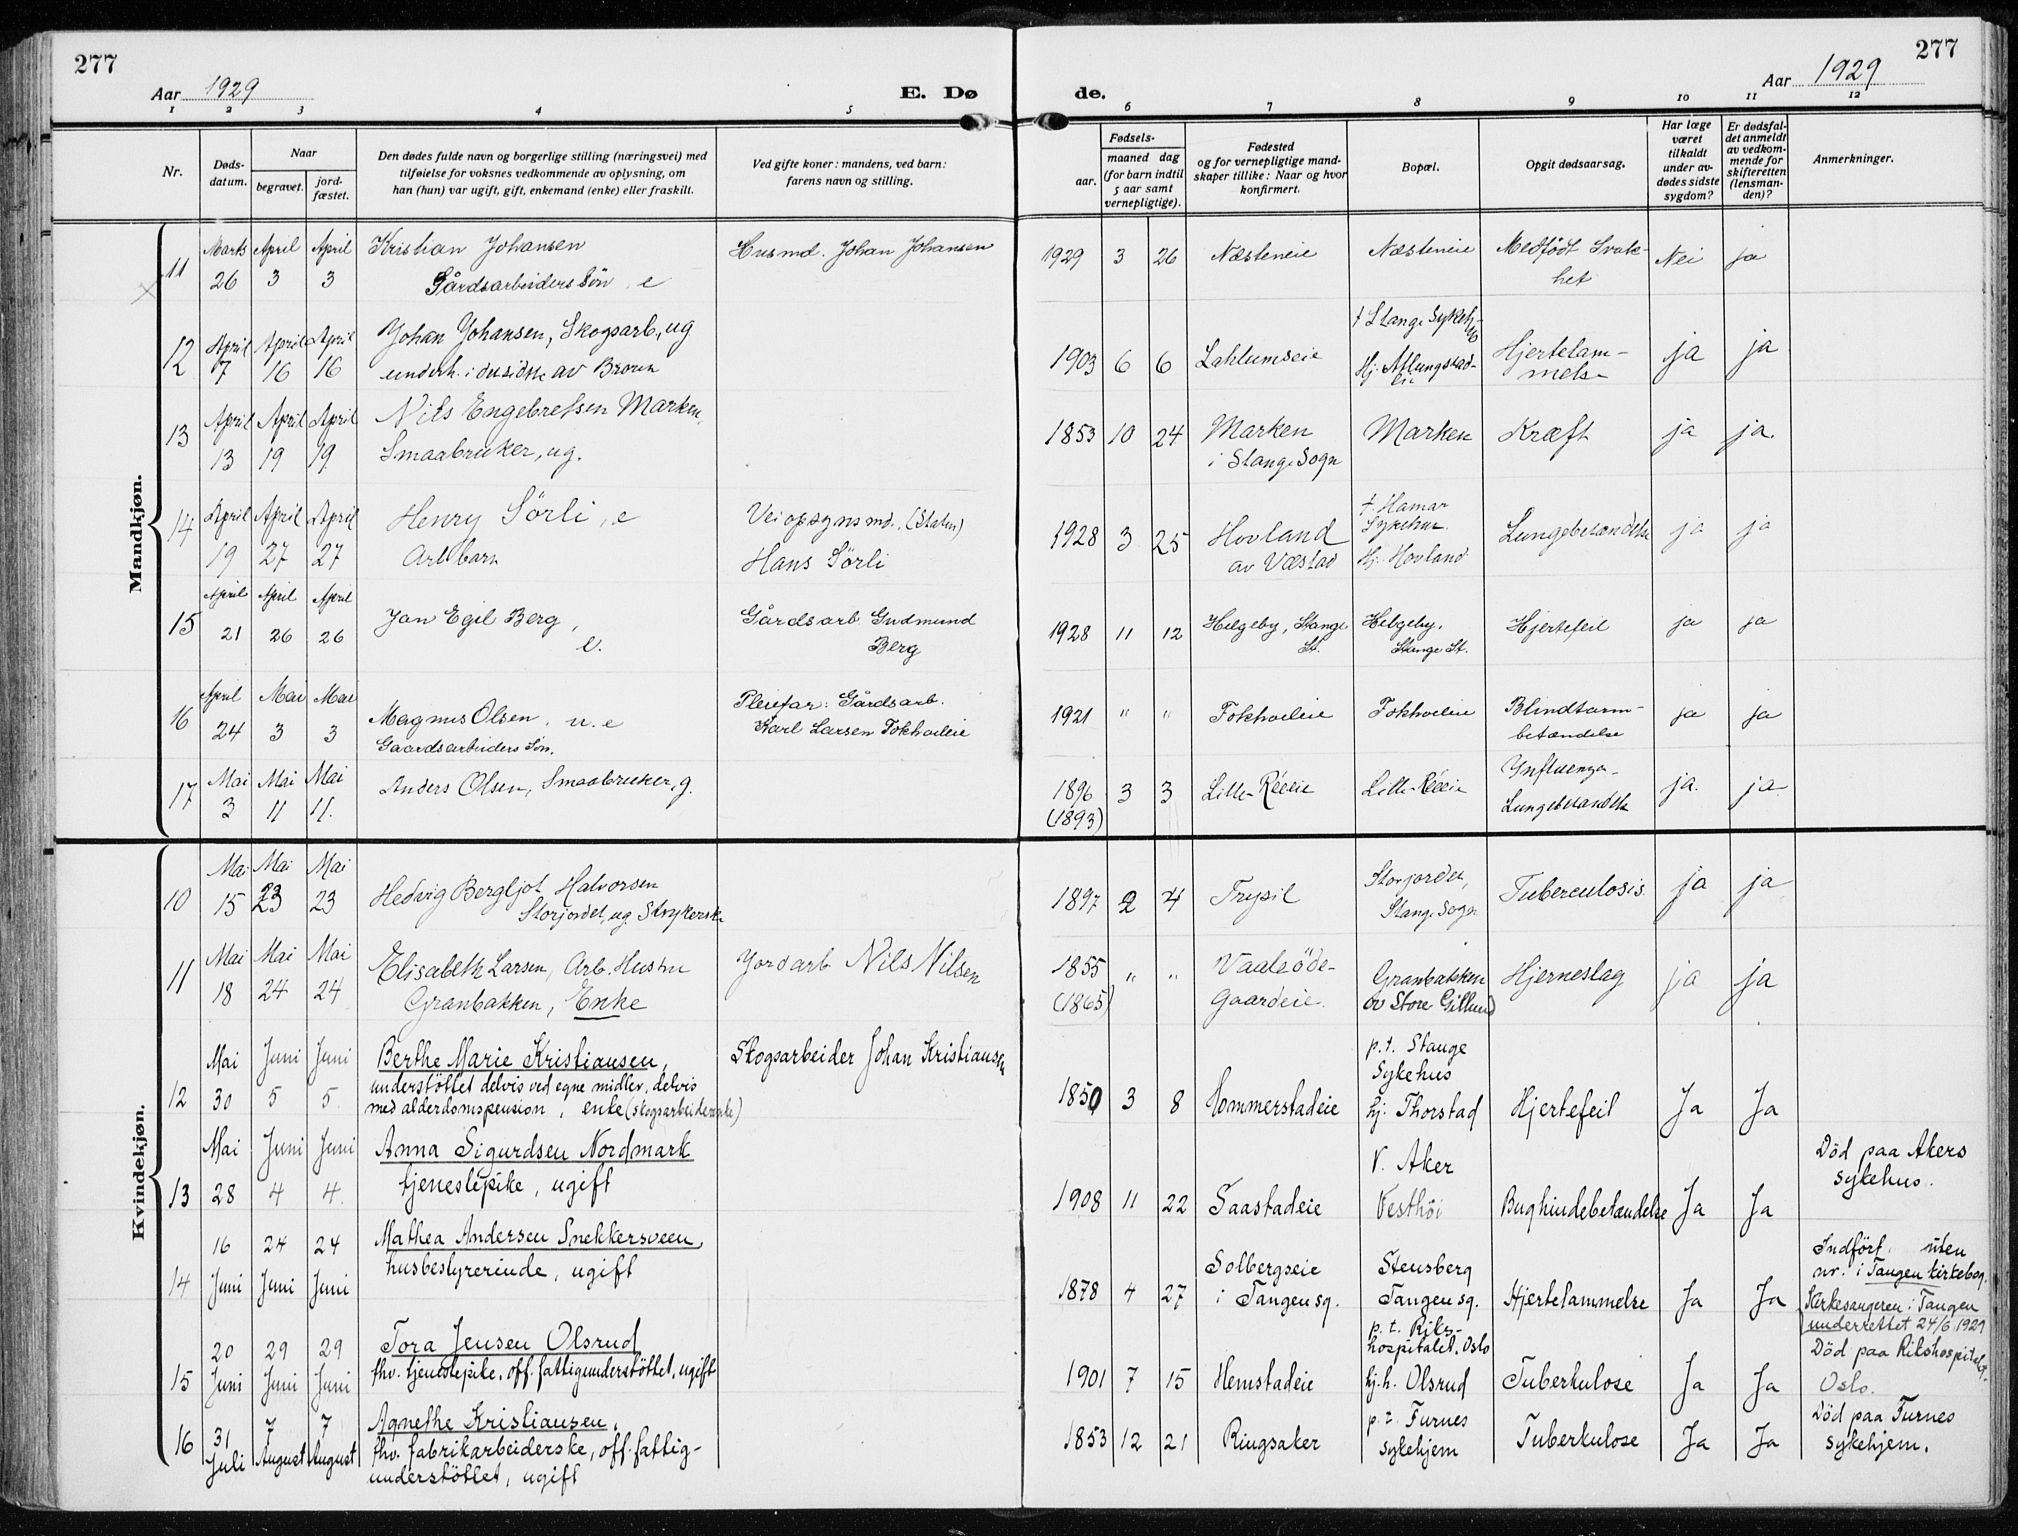 277
277
Aar 1929
E. Dø
de.
Aar 1929
1 2 3 4 5 6 7 8 9 10 11 12
Nr.
Døds-
datum.
Naar
begravet.
jord-
fæstet.
Den dødes fulde navn og borgerlige stilling (næringsvei) med
tilføielse for voksnes vedkommende av oplysning, om
han (hun) var ugift, gift, enkemand (enke) eller fraskilt.
Ved gifte koner: mandens, ved barn:
farens navn og stilling.
Fødsels-
aar.
maaned dag
(for barn indtil
5 aar samt
vernepligtige).
Fødested
og for vernepligtige mand-
skaper tillike: Naar og hvor
konfirmert.
Bopæl.
Opgit dødsaarsag.
Har læge
været
tilkaldt
under av-
dødes sidste
sygdom?
Er dødsfal-
det anmeldt
av vedkom-
mende for
skifteretten
(lensman-
den)?
Anmerkninger.
Mandkjøn.
11 Marts 26 April 3 April 3
Kristian Johansen
Gårdsarbeiders Sön e
Husmd. Johan Johansen
1929 3 26 Næsteneie Næsteneie
Medfödt Svak-
het
Nei ja
12 April 7 April 16 April 16
Johan Johansen, Skogsarb., ug
underh. i de sidste av Broren
1903 6 6 Laklumseie
† Stange Sykehus
Hj. Atlungstad-
eie
Hjertelam-
melse
ja ja
13 April 13 April 19 April 19
Nils Engebretsen Marken,
Smaabruker, ug.
1853 10 24
Marken
i Stange Sogn
Marken Kræft ja ja.
14 April 19 April 27 April 27
Henry Sörli, e
Arb.barn
Veiopsynsmd. (Staten)
Hans Sörli
1928 3 25
Hovland
av Væstad
†. Hamar
Sykehus.
Hj. Hovland
Lungebetændelse ja ja
15 April 21 April 26 April 26
Jan Egil Berg,
e.
Gårdsarb Gudmund
Berg
1928 11 12
Helgeby, Stange
St.
Helgeby,
Stange St.
Hjertefeil ja ja
16 April 24 Mai 3 Mai 3
Magnus Olsen. u.e
Gaardsarbeiders Sön.
Pleiefar: Gårdsarb.
Karl Larsen Fokholeie
1921 " " Fokholeie Fokholeie
Blindtarm-
betændelse
ja ja
17 Mai 3 Mai 11 Mai 11.
Anders Olsen, Smaabruker, g.
1896 3 3
(1893)
Lille-Réeeie Lille-Réeeie
Ynfluenza-
Lungebetændelse
ja. ja
Kvindekjøn.
10 Mai 15 Mai 23 Mai 23
Hedvig Bergljot Halvorsen
Storjordet, ug. Strykerske
1897 2 4 Trysil
Storjordet,
Stange Sogn
Tuberculosis. ja ja
11 Mai 18 Mai 24 Mai 24
Elisabeth Larsen, Arb. Hustru
Granbakken, Enke
Jordarb Nils Nilsen
1855 " "
(1865)
Vaalsöde-
Gaardeie.
Granbakken
av Store Gillund
Hjerneslag ja ja
12 Mai 30 Juni 5 Juni 5.
Berthe Marie Kristiansen,
understöttet delvis ved egne midler, delvis
med alderdomspension, enke (skogsarbeiderenke)
Skogsarbeider Johan Kristiansen
1850 3 8 Kommerstadeie
p.t. Stange
Sykehus
hj: Thorstad
Hjertefeil Ja Ja
13 Mai 28 Juni 4 Juni 4.
Anna Sigurdsen Nordmark
tjenestepike, ugift
1908 11 22 Saastadeie
V. Aker
Vesthöi
Bughindebetændelse Ja Ja
Död paa Akers
sykehus.
14 16 Juni 24 Juni 24 Juni
Mathea Andersen Snekkersveen,
husbestyrerinde, ugift
1878 4 27
Solbergseie
i Tangen sg.
Stensberg
Tangen sg.
Hjertelammelse Ja Ja
Indfört uten
nr. i Tangen kirkebog.
Kirkesangeren i Tangen
underrettet 24/6 1929
15 20 Juni 29 Juni 29 Juni
Tora Jensen Olsrud
fhv. tjenestepike, off. fattigunderstöttet, ugift
1901 7 15 Hemstadeie
p.t. Riks-
hospitalet, Oslo
hj.h. Olsrud
Tuberkulose Ja Ja
Död paa Rikshospitalet,
Oslo.
16 31 Juli 7 August 7 August
Agnethe Kristiansen,
fhv. fabrikarbeiderske, off. fattig-
understöttet, ugift
1853 12 21 Ringsaker
p.t. Furnes
sykehjem
Tuberkulose Ja Ja
Död paa Furnes
sykehjem.